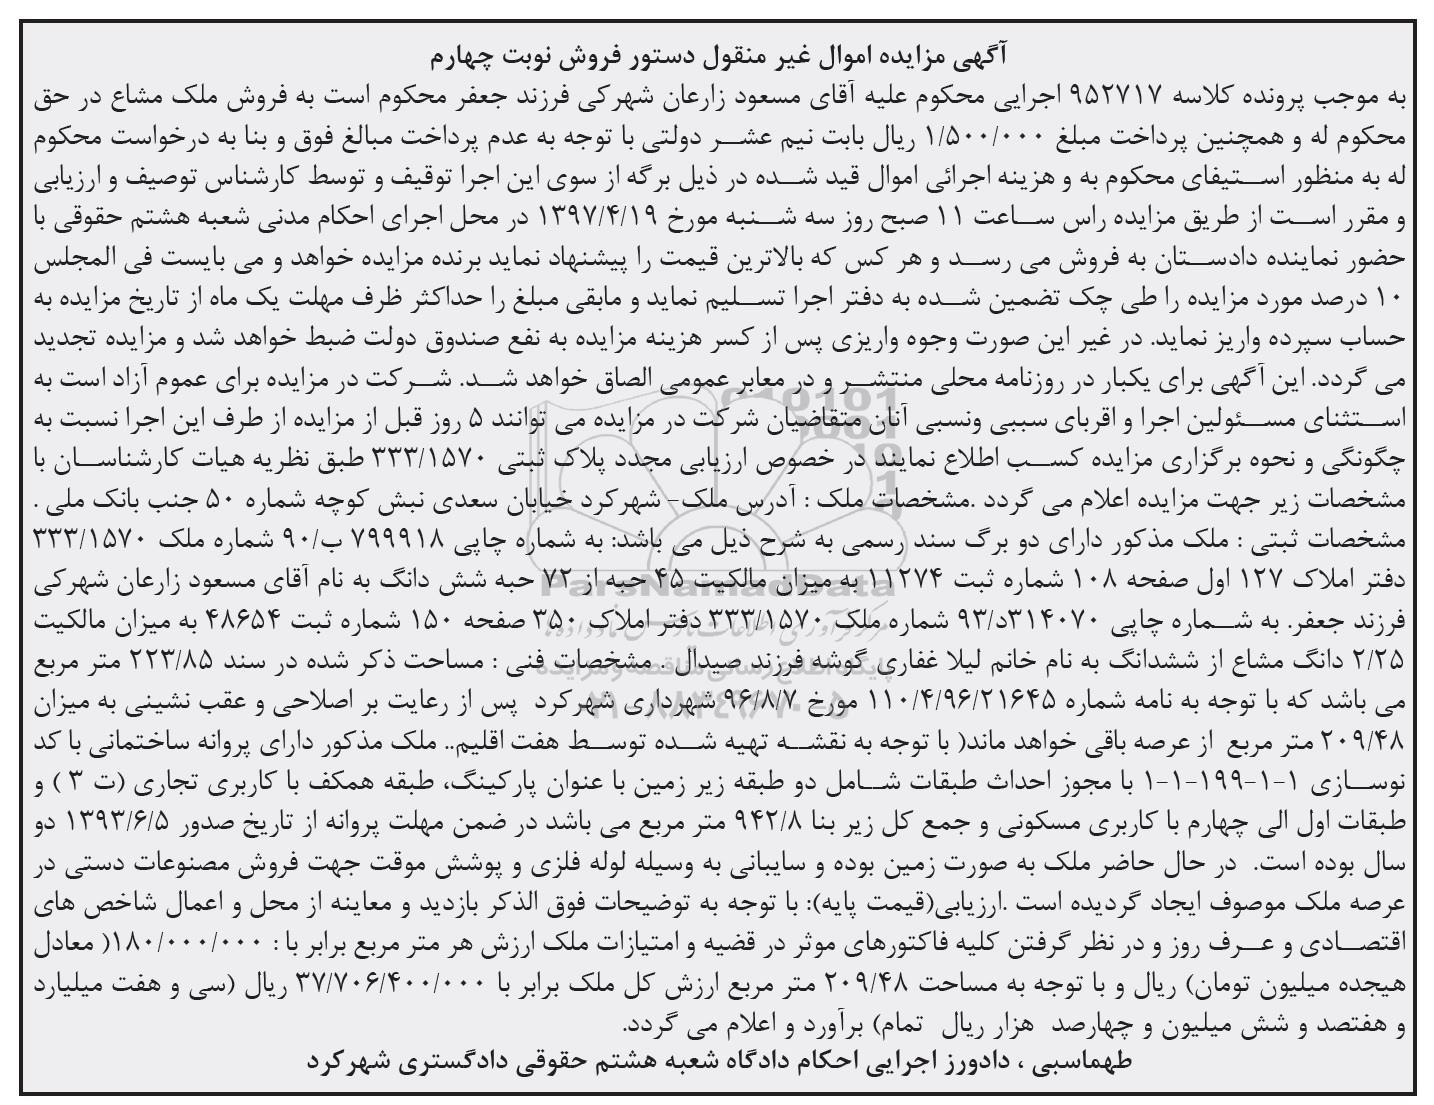 آگهی مزایده اموال غیر منقول دستور فروش نوبت چهارم
به موجب پرونده کلاسه ۹۵۲۷۱۷ اجرایی محکوم علیه آقای مسعود زارعان شهرکی فرزند جعفر محکوم است به فروش ملک مشاع در حق
محکوم له و همچنین پرداخت مبلغ ۱/۵۰۰/۰۰۰ ریال بابت نیم عشر دولتی با توجه به عدم پرداخت مبالغ فوق و بنا به درخواست محکوم
له به منظور استیفای محکوم به و هزینه اجرائی اموال قید شده در ذیل برگه از سوی این اجرا توقیف و توسط کارشناس توصیف و ارزیابی
و مقرر است از طریق مزایده راس ساعت ۱۱ صبح روز سه شنبه مورخ ۱۳۹۷/۴/۱۹ در محل اجرای احکام مدنی شعبه هشتم حقوقی با
حضور نماینده دادستان به فروش می رسد و هر کس که بالاترین قیمت را پیشنهاد نماید برنده مزایده خواهد و می بایست فی المجلس
۱۰ درصد مورد مزایده را طی چک تضمین شده به دفتر اجرا تسلیم نماید و مابقی مبلغ را حداکثر ظرف مهلت یک ماه از تاریخ مزایده به
حساب سپرده واریز نماید. در غیر این صورت وجوه واریزی پس از کسر هزینه مزایده به نفع صندوق دولت ضبط خواهد شد و مزایده تجدید
می گردد. این آگهی برای یکبار در روزنامه محلی منتشر و در معابر عمومی الصاق خواهد شد. شرکت در مزایده برای عموم آزاد است به
استثنای مسئولین اجرا و اقربای سببی ونسبی آنان متقاضیان شرکت در مزایده می توانند ۵ روز قبل از مزایده از طرف این اجرا نسبت به
چگونگی و نحوه برگزاری مزایده کسب اطلاع نمایند در خصوص ارزیابی مجدد پلاک ثبتی ۳۳۳/۱۵۷۰ طبق نظریه هیات کارشناسان با
مشخصات زیر جهت مزایده اعلام می گردد .مشخصات ملک : آدرس ملک- شهرکرد خیابان سعدی نبش کوچه شماره ۵۰ جنب بانک ملی .
مشخصات ثبتی : ملک مذکور دارای دو برگ سند رسمی به شرح ذیل می باشد: به شماره چاپی ۷۹۹۹۱۸ ب/۹۰ شماره ملک ۳۳۳/۱۵۷۰
دفتر املاک ۱۲۷ اول صفحه ۱۰۸ شماره ثبت ۱۱۲۷۴ به میزان مالکیت ۴۵ حبه از ۷۲ حبه شش دانگ به نام آقای مسعود زارعان شهرکی
فرزند جعفر. به شماره چاپی ۳۱۴۰۷۰د/۹۳ شماره ملک ۳۳۳/۱۵۷۰ دفتر املاک ۳۵۰ صفحه ۱۵۰ شماره ثبت ۴۸۶۵۴ به میزان مالکیت
۲/۲۵ دانگ مشاع از ششدانگ به نام خانم لیلا غفاری گوشه فرزند صیدال . مشخصات فنی : مساحت ذکر شده در سند ۲۲۳/۸۵ متر مربع
می باشد که با توجه به نامه شماره ۱۱۰/۴/۹۶/۲۱۶۴۵ مورخ ۹۶/۸/۷ شهرداری شهرکرد پس از رعایت بر اصلاحی و عقب نشینی به میزان
۲۰۹/۴۸ متر مربع از عرصه باقی خواهد ماند( با توجه به نقشه تهیه شده توسط هفت اقلیم.. ملک مذکور دارای پروانه ساختمانی با کد
نوسازی ۱-۱-۱۹۹-۱-۱ با مجوز احداث طبقات شامل دو طبقه زیر زمین با عنوان پارکینگ، طبقه همکف با کاربری تجاری (ت ۳ ) و
طبقات اول الی چهارم با کاربری مسکونی و جمع کل زیر بنا ۹۴۲/۸ متر مربع می باشد در ضمن مهلت پروانه از تاریخ صدور ۱۳۹۳/۶/۵ دو
سال بوده است. در حال حاضر ملک به صورت زمین بوده و سایبانی به وسیله لوله فلزی و پوشش موقت جهت فروش مصنوعات دستی در
عرصه ملک موصوف ایجاد گردیده است .ارزیابی(قیمت پایه): با توجه به توضیحات فوق الذکر بازدید و معاینه از محل و اعمال شاخص های
اقتصادی و عرف روز و در نظر گرفتن کلیه فاکتورهای موثر در قضیه و امتیازات ملک ارزش هر متر مربع برابر با : ۱۸۰/۰۰۰/۰۰۰( معادل
هیجده میلیون تومان) ریال و با توجه به مساحت ۲۰۹/۴۸ متر مربع ارزش کل ملک برابر با ۳۷/۷۰۶/۴۰۰/۰۰۰ ریال (سی و هفت میلیارد
و هفتصد و شش میلیون و چهارصد هزار ریال تمام) برآورد و اعلام می گردد.
طهماسبی ، دادورز اجرایی احکام دادگاه شعبه هشتم حقوقی دادگستری شهرکرد
ParsNamadData
پایگاه اطلاع رسانی مناقصه و مزایده